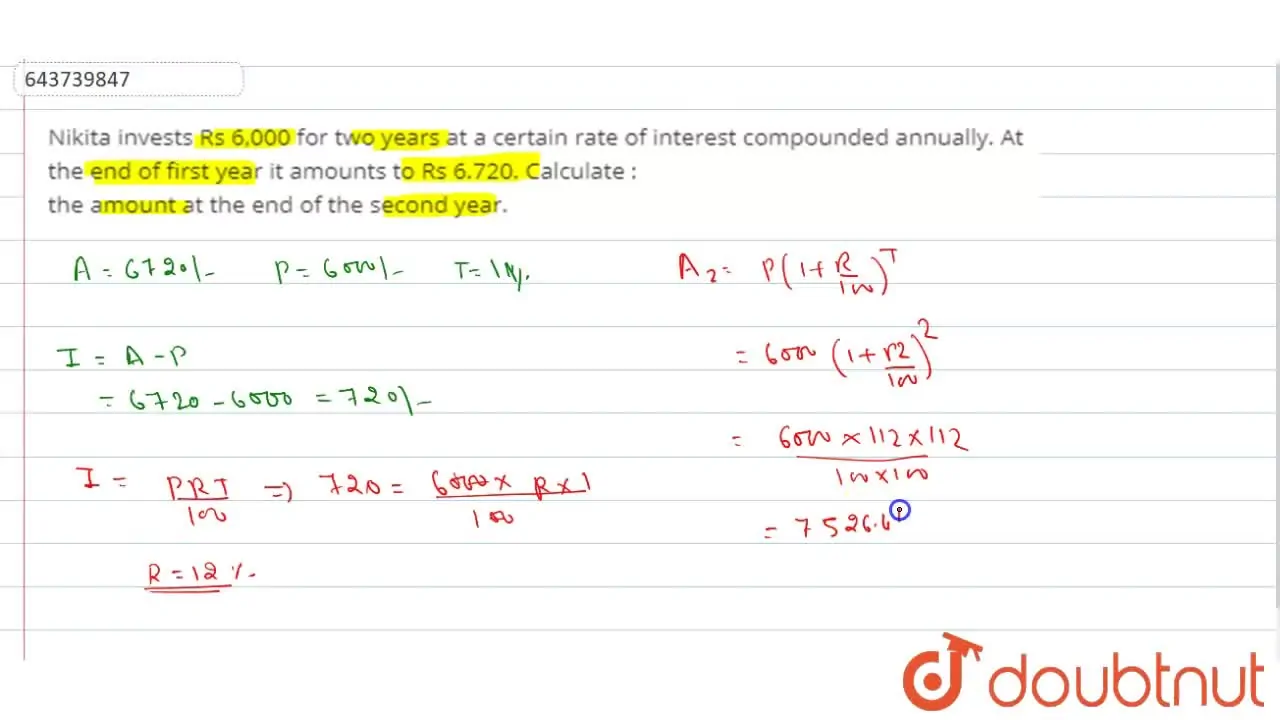 643739847
Nikita invests Rs 6,000 for two years at a certain rate of interest compounded annually. At
the end of first year it amounts to Rs 6.720. Calculate :
the amount at the end of the second year.
A = 6720/- P = 6000/- T = 1 y.
I = A - P
= 6720 - 6000 = 720/-
I = PRT/100 => 720 = 6000 x R x 1/100
R = 12 %
A2 = P(1+R/100)^T
= 6000 (1+12/100)^2
= 6000 x 112 x 112/100 x 100
= 7526.4
doubtnut